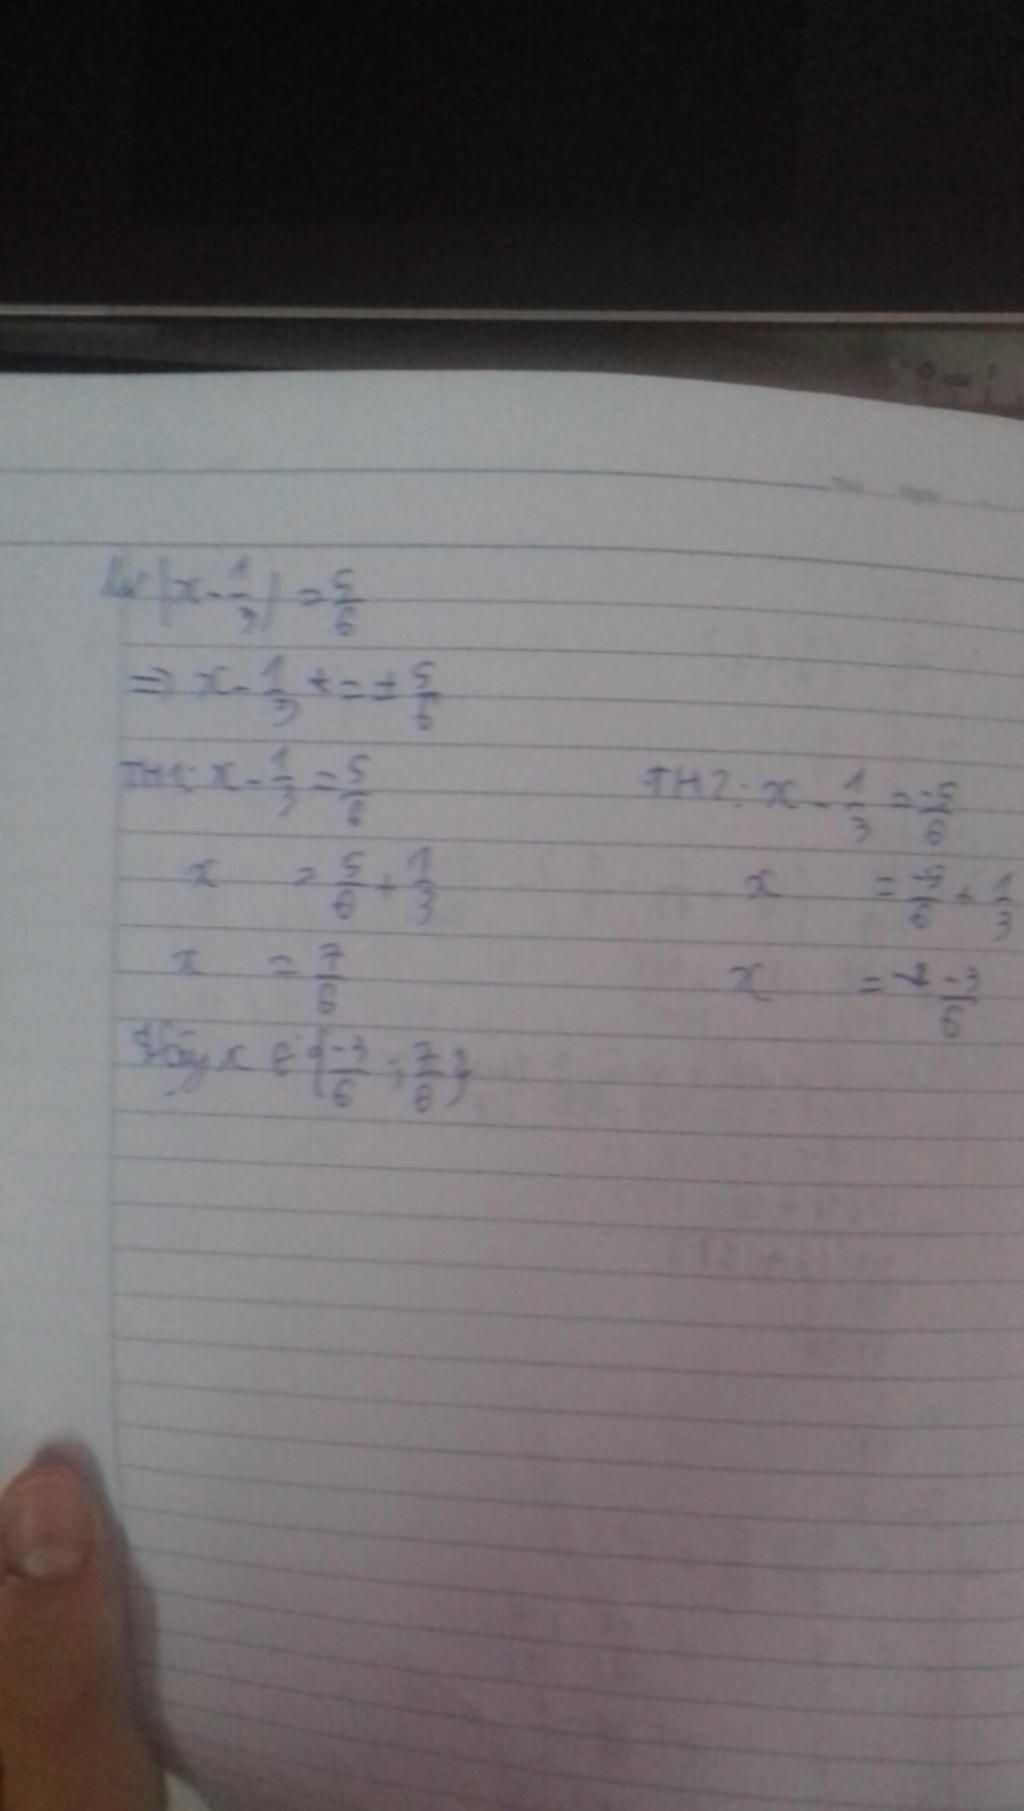 |x - 1/3| = 5/6
=> x - 1/3 = ± 5/6
TH1: x - 1/3 = 5/6
x = 5/6 + 1/3
x = 7/6
TH2: x - 1/3 = -5/6
x = -5/6 + 1/3
x = -3/6
Vậy x ∈ {-3/6 ; 7/6}